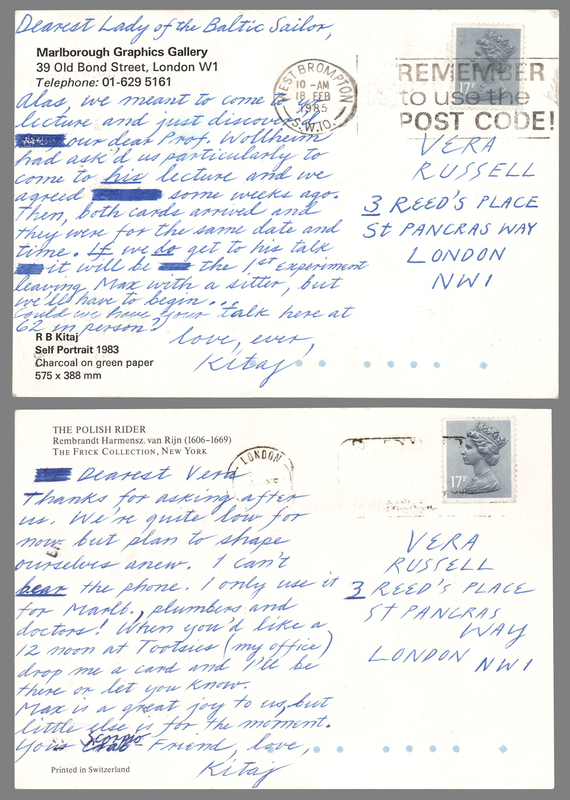 Dearest Lady of the Baltic Sailor,
Marlborough Graphics Gallery
39 Old Bond Street, London W1
Telephone: 01-629 5161
Alas, we meant to come to yr
lecture and just discovered
our dear Prof. Wollheim
had ask'd us particularly to
come to his lecture and we
agreed some weeks ago.
Then, both cards arrived and
they were for the same date and
time. If we do get to his talk
it will be the 1st experiment
leaving Max with a sitter, but
we'll have to begin...
(could we have your talk here at
62 in person?)
love, ever,
Kitaj
R B Kitaj
Self Portrait 1983
Charcoal on green paper
575 x 388 mm
WEST BROMPTON
10 -AM
18 FEB
1985
S.W.10.
17P
REMEMBER
to use the
POST CODE!
VERA
RUSSELL
3 REED'S PLACE
St PANCRAS WAY
LONDON
NW1
THE POLISH RIDER
Rembrandt Harmensz. van Rijn (1606–1669)
THE FRICK COLLECTION, NEW YORK
Dearest Vera
Thanks for asking after
us. We're quite low for
now but plan to shape
ourselves anew. I can't
bear the phone. I only use it
for Marlb., plumbers and
doctors! When you'd like a
12 noon at Tootsies (my office)
drop me a card and I'll be
there or let you know.
Max is a great joy to us, but
little else is for the moment.
Your Scorpio Friend, love,
Kitaj
Printed in Switzerland
LONDON
17P
VERA
RUSSELL
3 REED'S PLACE
ST PANCRAS
WAY
LONDON NW1